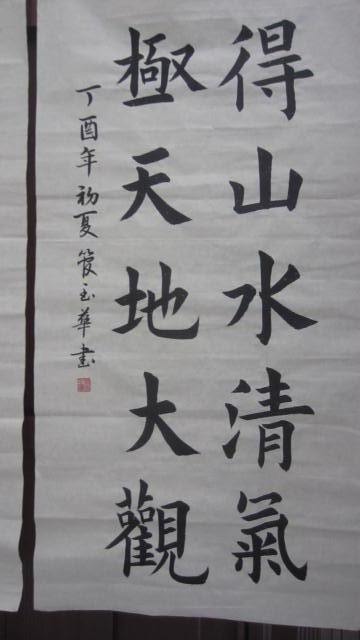 得山水清氣
極天地大觀
丁酉年初夏管玉華書